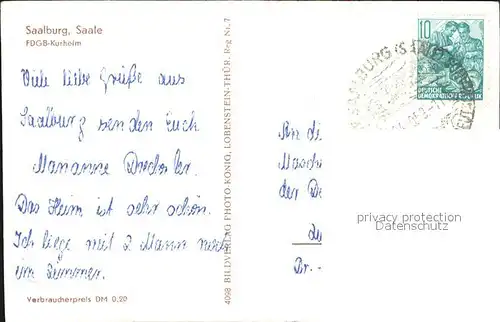 Saalburg, Saale
FDGB-Kurheim
Viele liebe Grüße aus
Saalburg senden Euch
Marianne
Das Heim ist sehr schön.
Ich liege mit 2 Mann noch
im Zimmer.
Verbraucherpreis DM 0.20
4098 BILDVERLAG PHOTO-KÖNIG, LOBENSTEIN-THÜR. Reg Nr. 7
10
DEUTSCHE
DEMOKRATISCHE REPUBLIK
SAALBURG (SAALE)
An di
Masch
der De
Dr. -
privacy protection
Datenschutz